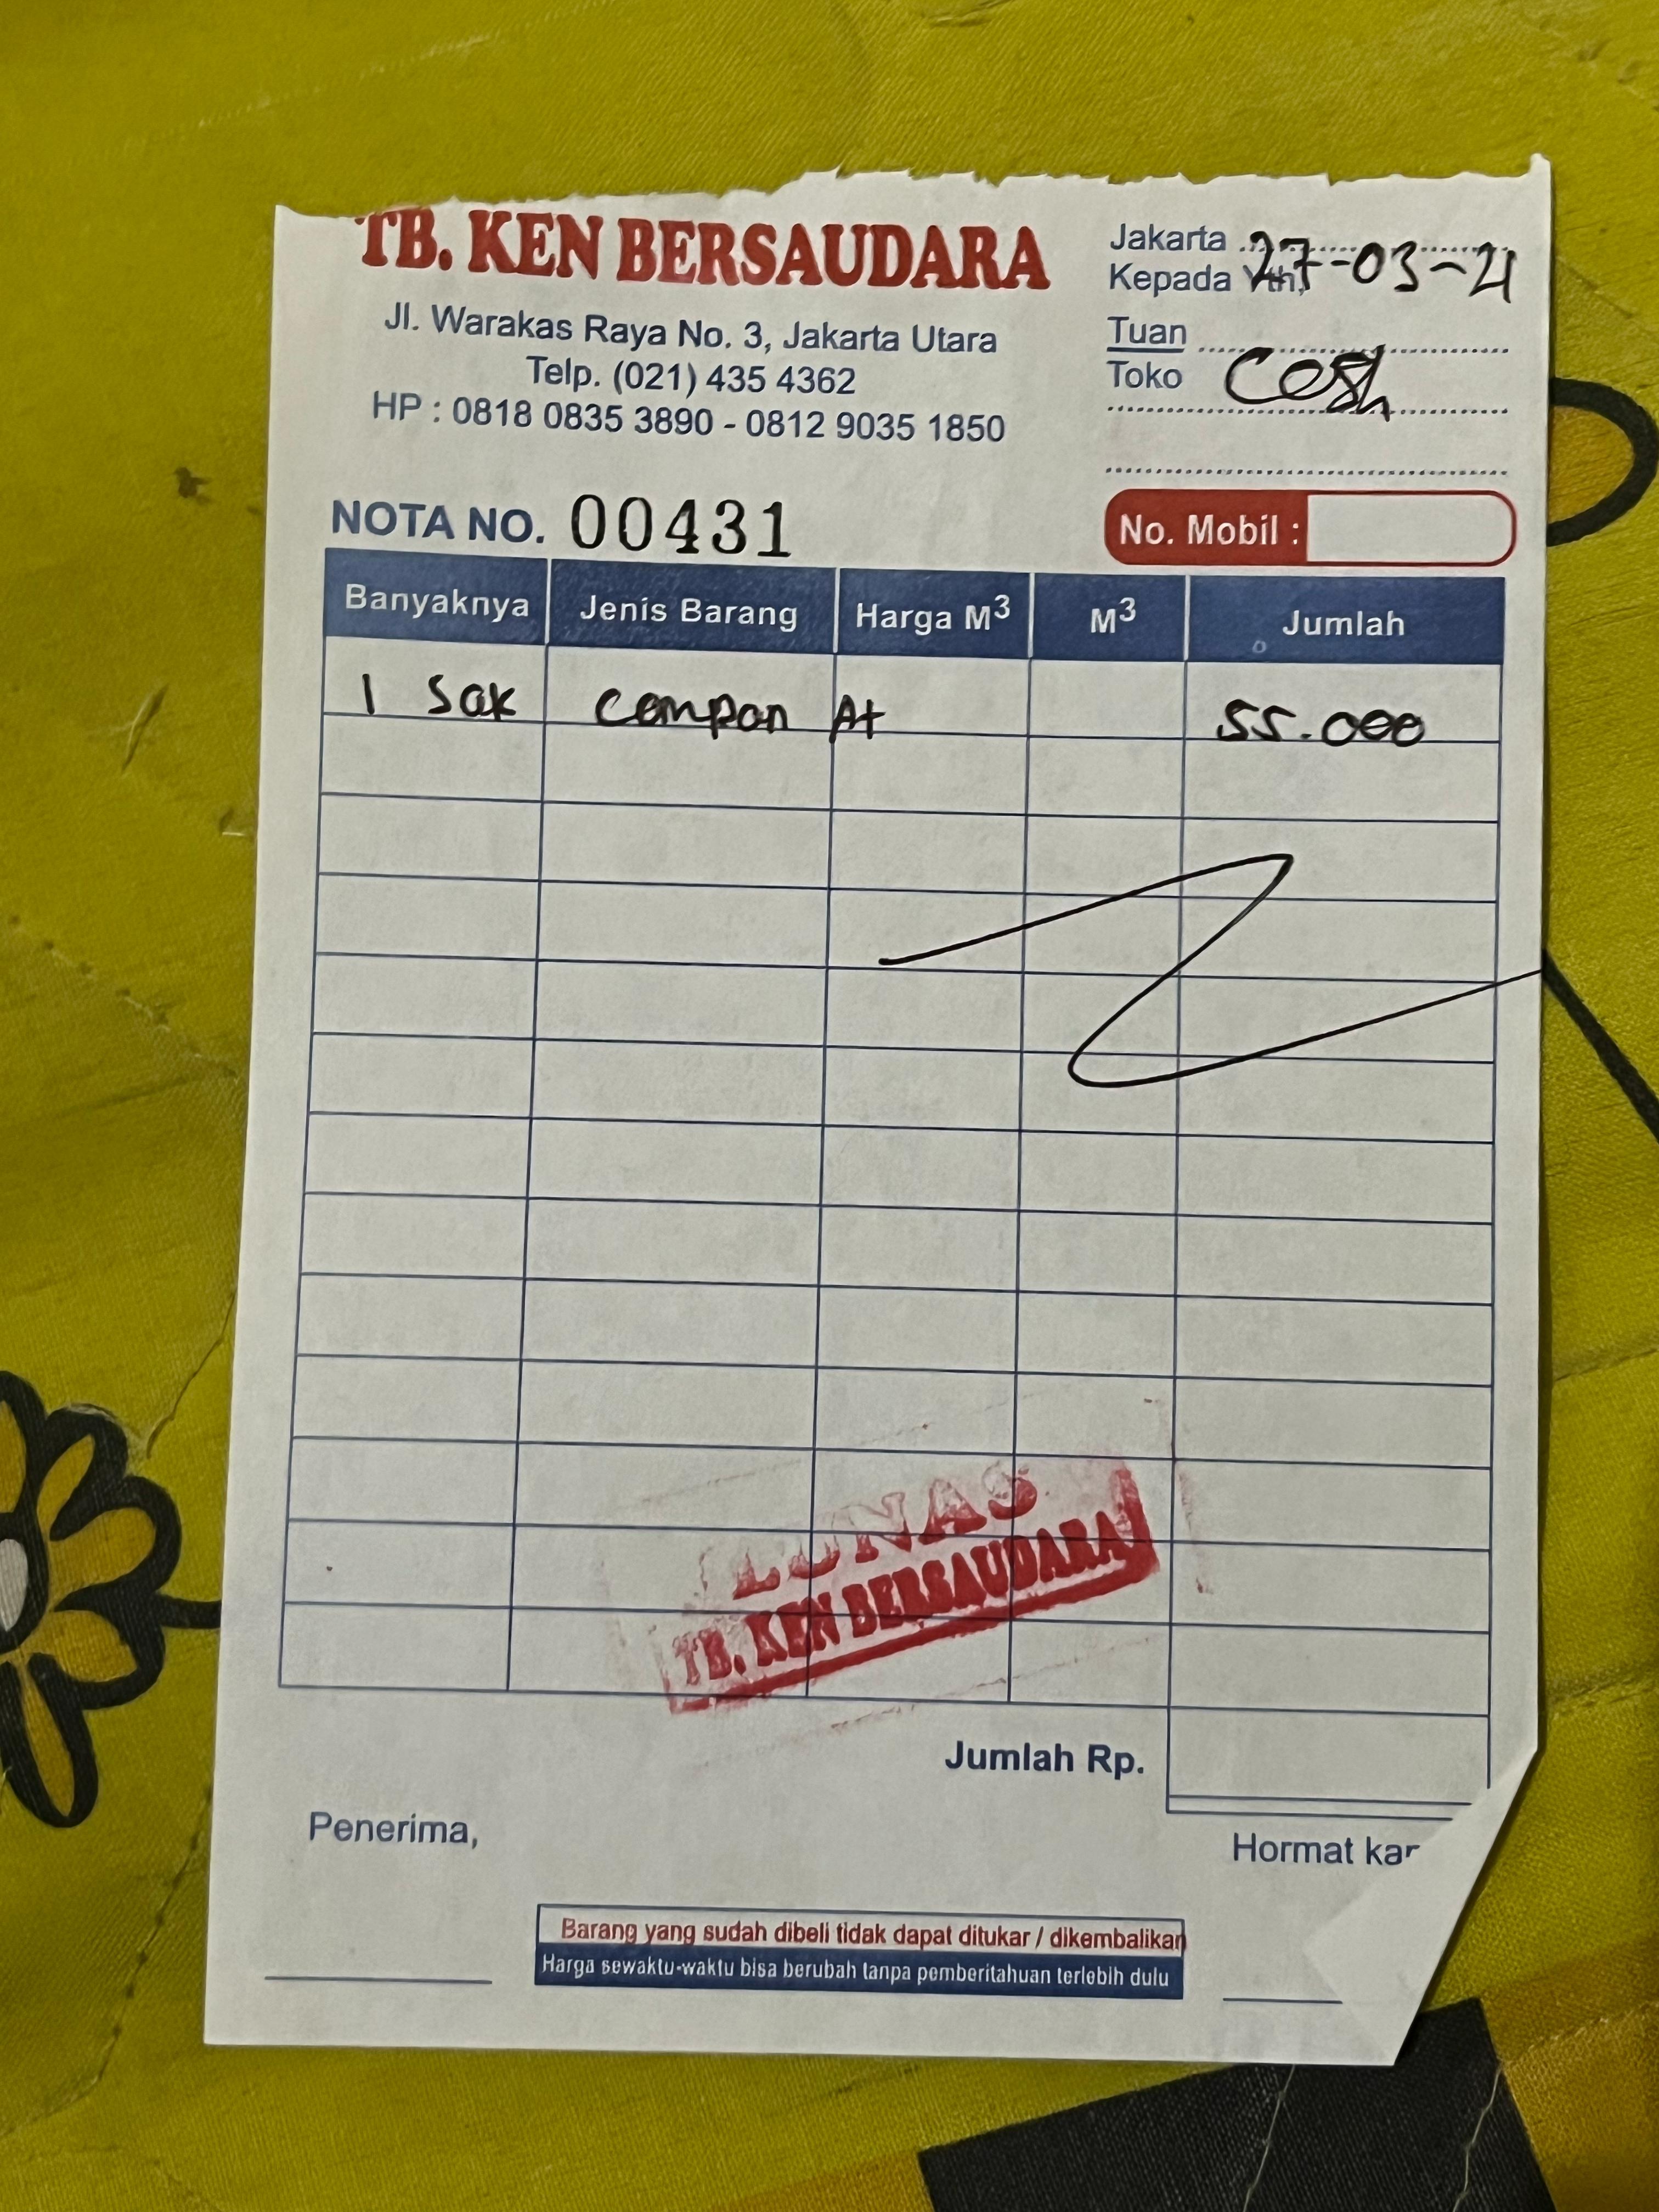 TB. KEN BERSAUDARA
Jl. Warakas Raya No. 3, Jakarta Utara
Telp. (021) 435 4362
HP : 0818 0835 3890 - 0812 9035 1850
Jakarta 27-03-21
Kepada Yth,
Tuan
Toko Cash
NOTA NO. 00431
No. Mobil :
Banyaknya Jenis Barang Harga M³ M³ Jumlah
1 Sak Compon At 55.000
LUNAS
TB. KEN BERSAUDARA
Jumlah Rp.
Penerima,
Hormat kar
Barang yang sudah dibeli tidak dapat ditukar / dikembalikan
Harga sewaktu-waktu bisa berubah tanpa pemberitahuan terlebih dulu